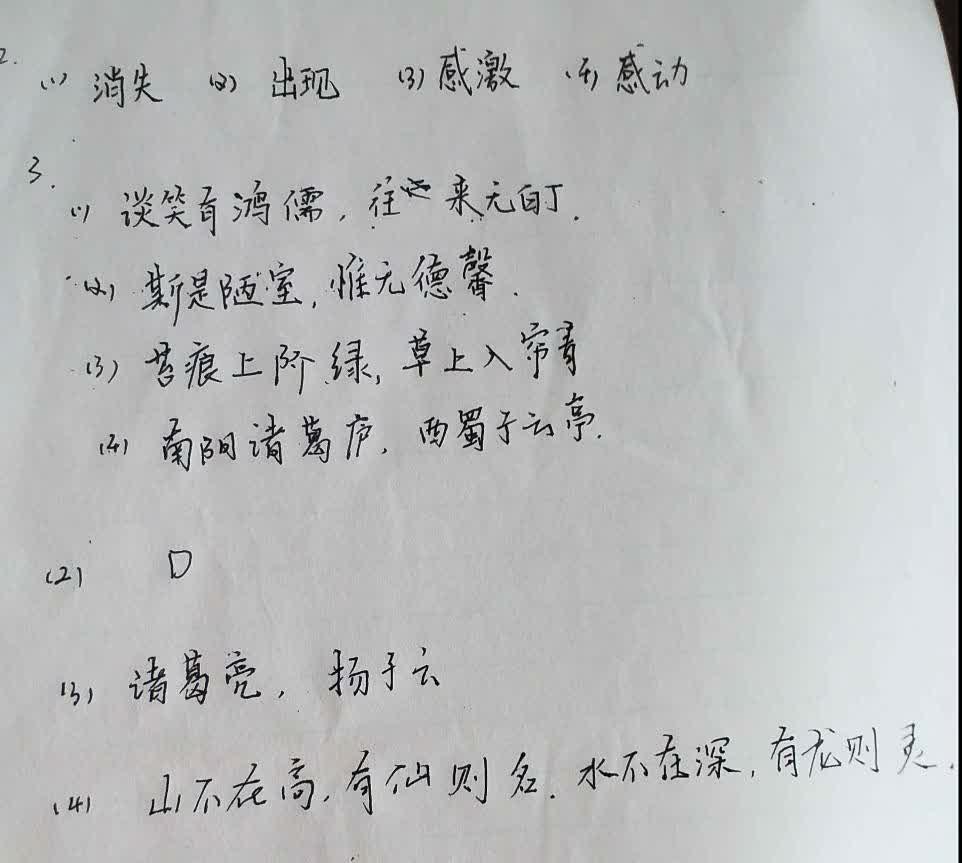 2.
(1) 消失 (2) 出现 (3) 感激 (4) 感动
3.
(1) 谈笑有鸿儒,往来无白丁.
(2) 斯是陋室,惟无德馨.
(3) 苔痕上阶绿,草上入帘青
(4) 南阳诸葛庐,西蜀子云亭.
(2) D
(3) 诸葛亮,扬子云
(4) 山不在高,有仙则名.水不在深,有龙则灵.